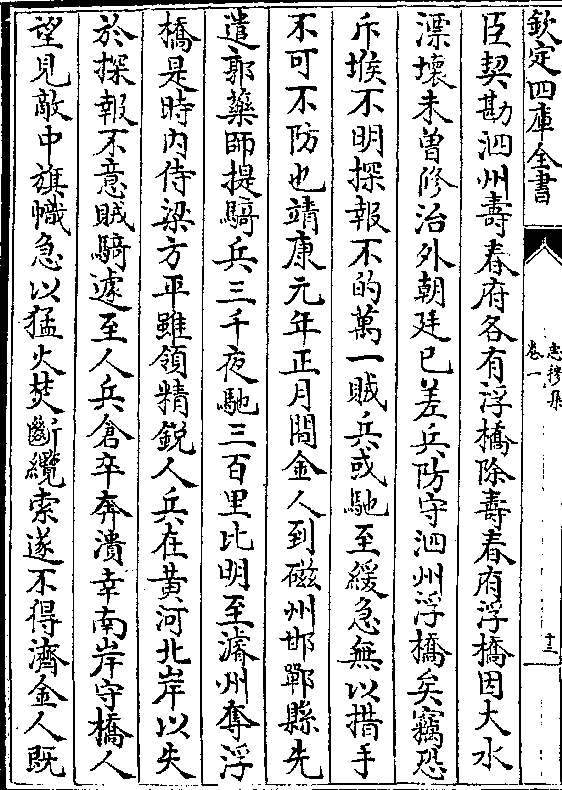 欽定四庫全書
忠穆集
卷一
十三
臣契勘泗州壽春府各有浮橋除壽春府浮橋因大水
漂壞未曾修治外朝廷已差兵防守泗州浮橋矣竊恐
斥堠不明探報不的萬一賊兵或馳至緩急無以措手
不可不防也靖康元年正月間金人到磁州邯鄲縣先
遣郭藥師提騎兵三千夜馳三百里比明至濬州奪浮
橋是時内侍梁方平雖領精鋭人兵在黄河北岸以失
於探報不意賊騎遽至人兵倉卒奔潰幸南岸守橋人
望見敵中旗幟急以猛火焚斷纜索遂不得濟金人既